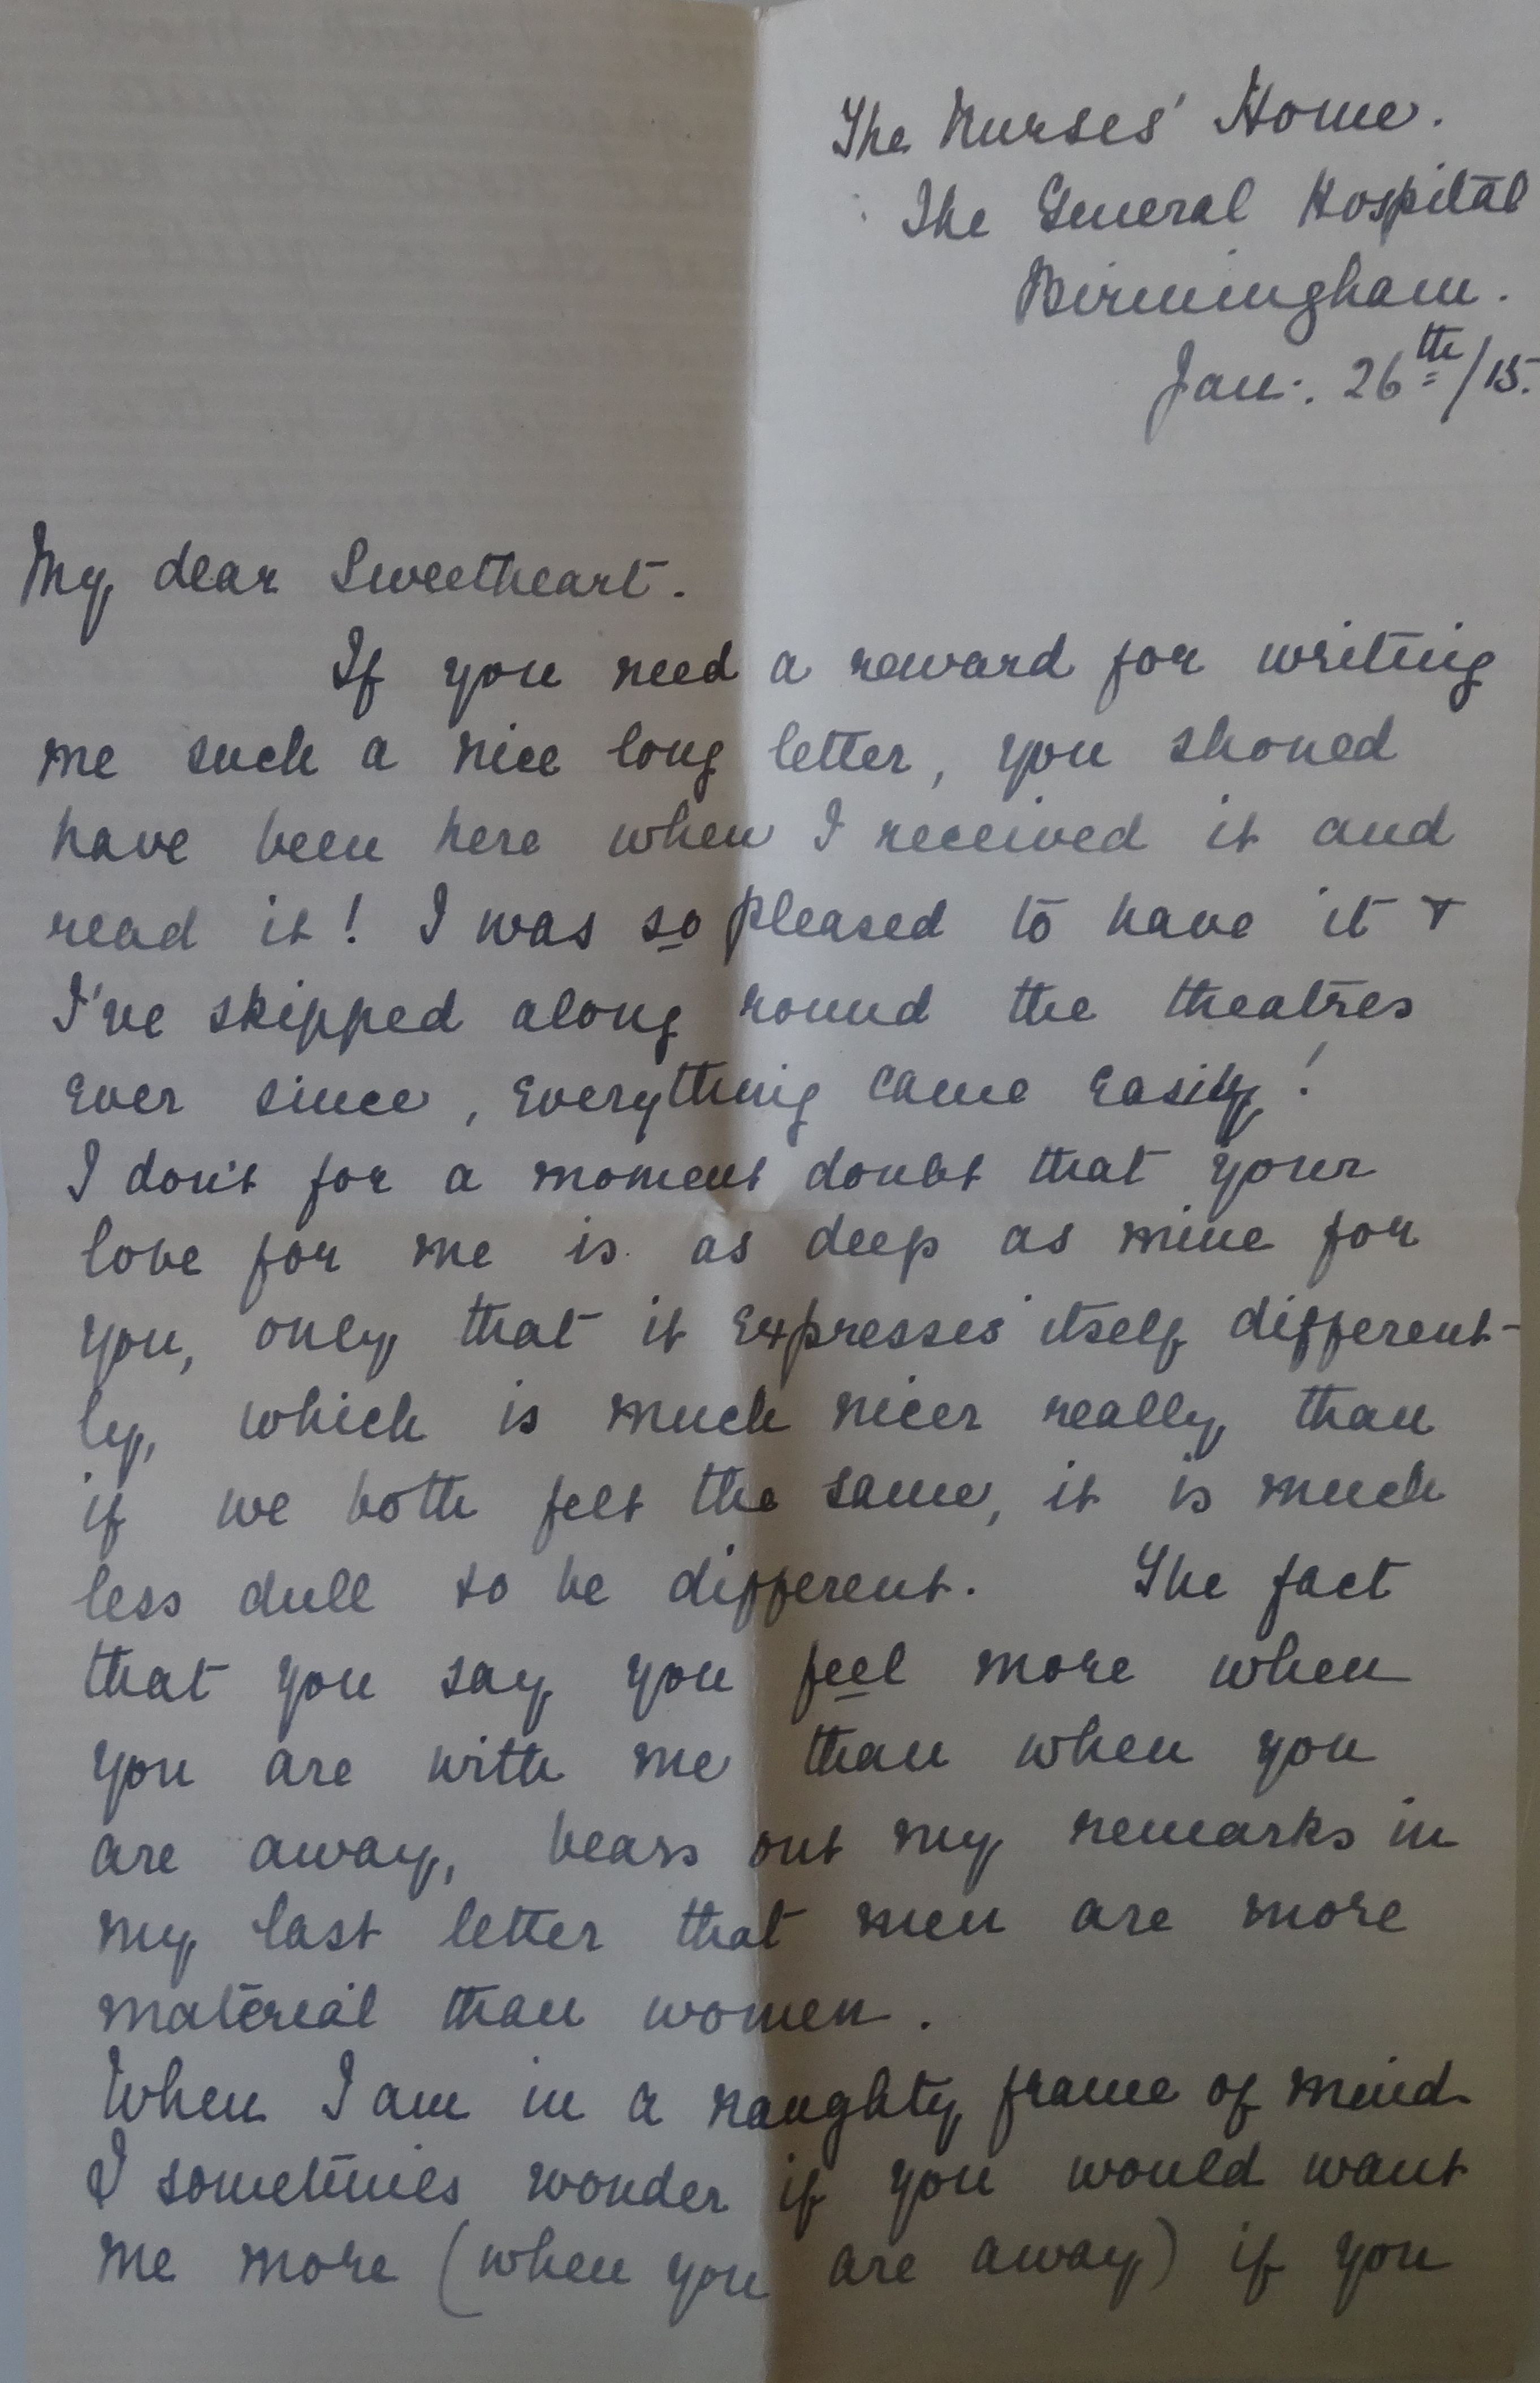 The Nurses' Home.
The General Hospital
Birmingham.
Jan:. 26th/15.
My dear Sweetheart.
If you need a reward for writing
me such a nice long letter, you should
have been here when I received it and
read it! I was so pleased to have it &
I've skipped along round the theatres
ever since, everything came easily!
I don't for a moment doubt that your
love for me is as deep as mine for
you, only that it expresses itself different-
ly, which is much nicer really than
if we both felt the same, it is much
less dull to be different. The fact
that you say you feel more when
you are with me than when you
are away, bears out my remarks in
my last letter that men are more
material than women.
When I am in a naughty frame of mind
I sometimes wonder if you would want
me more (when you are away) if you